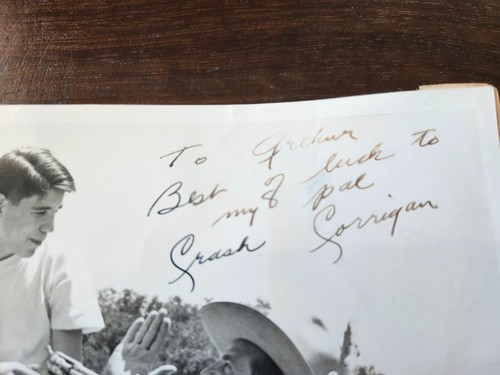 To Arthur
Best of luck to
my pal
Crash Corrigan